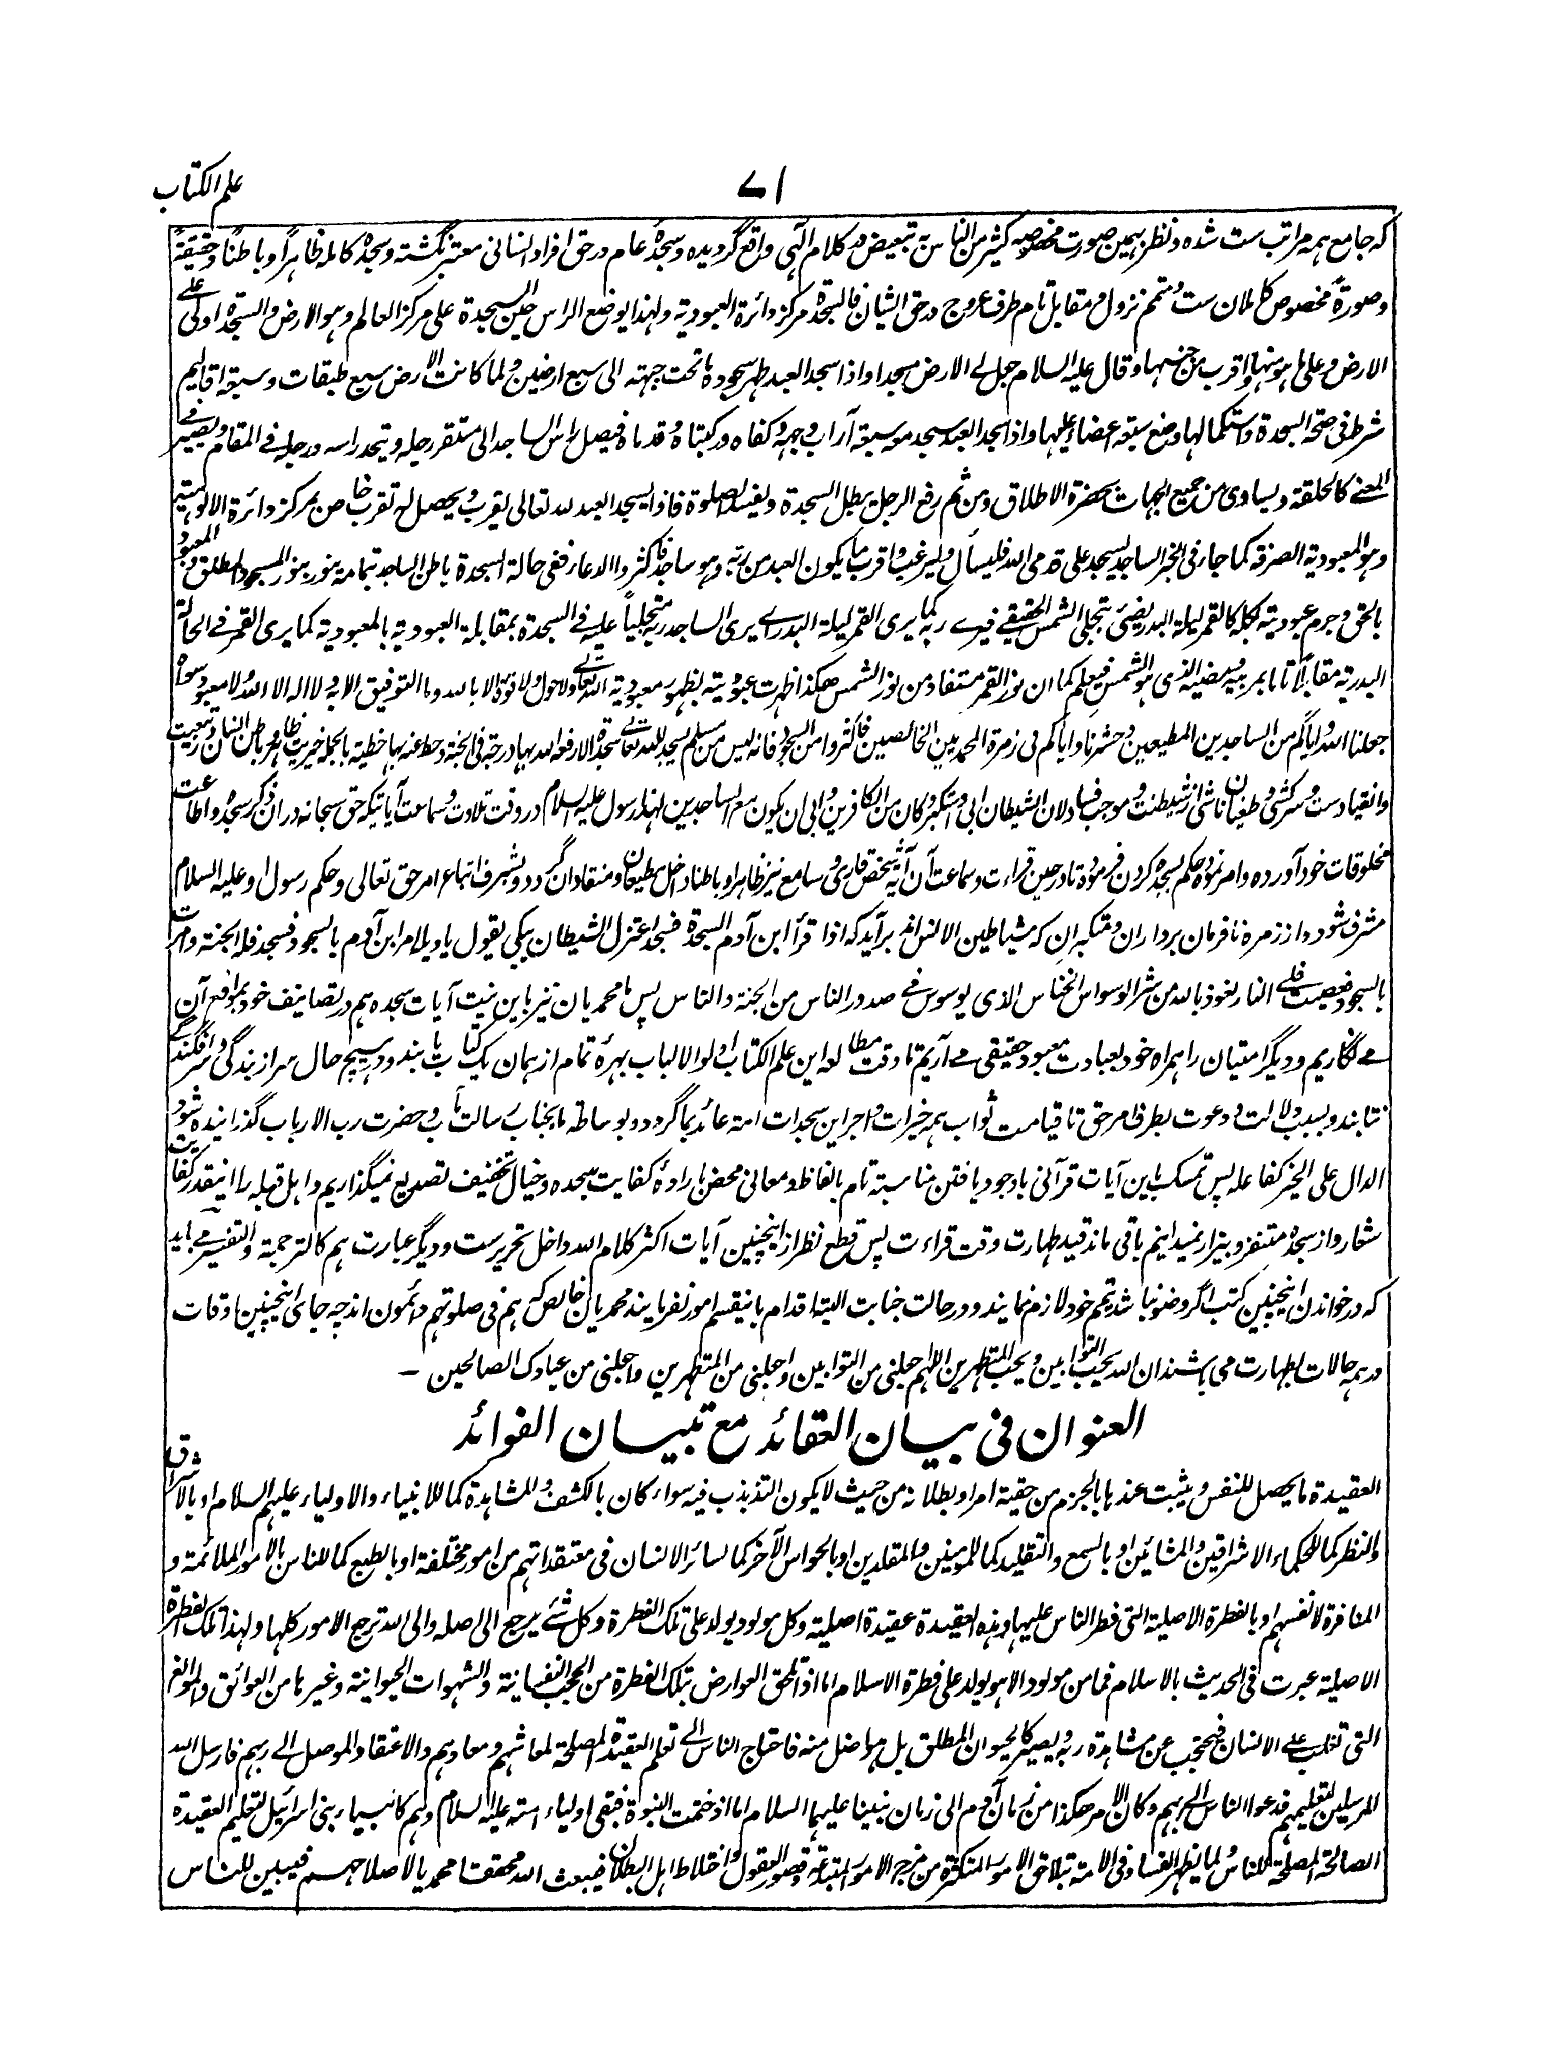 علم الکتاب
۷۱
که جامع همه مراتب ست شده و نظر بهمین صورت مخصوصه کثیر من الناس به تبعیض در کلام الٓهی واقع گردیده و سجدهٔ عام در حق افراد انسانی معتبر گشته و سجدهٔ کامله ظاهراً و باطناً و حقیقةً
و صورةً مخصوص کاملان ست و متمم نزول و مقابل تام طرف عروج در حق ایشان فالسجدة مرکز دائرة العبودیة ولهذا یوضع الراس حین السجدة علی مرکز العالم وهو الارض والسجدة اولی علی
الارض وعلی ما هو منها واقرب من جنسها وقال علیه السلام جعل لی الارض مسجدا واذا سجد العبد طهر سجوده ما تحت جبهته الی سبع ارضین ولما کانت الارض سبع طبقات وسبعة اقالیم
شرط فی صحة السجدة واستکمالها وضع سبعة اعضاء علیها واذا سجد العبد سجد معه سبعة آراب وجهه وکفاه ورکبتاه وقدماه فیصل راس الساجد الی مستقر رجله ویتحد راسه ورجله فی المقام ویصیر فی
المعنے کالحلقة ویساوی من جمیع الجهات بحضرة الاطلاق ومن ثم رفع الرجل یبطل السجدة ویفسد الصلوة فاذا یسجد العبد لله تعالی یقرب ویحصل له تقرب خاص بمرکز دائرة الالوهیة
وهو المعبودیة الصرفة کما جاء فی الخبر الساجد یسجد علی قدمی الله فلیسأل ولیرغب واقرب ما یکون العبد من ربه وهو ساجد فاکثروا الدعاء ففی حالة السجدة باطن الساجد بتمامه ینور بنور المسجود المطلق والمعبود
بالحق وجرم عبودیته کجله کالقمر لیلة البدر یضئ بتجلی الشمس الحقیقی فیرے ربه کما یری القمر لیلة البدر اے یری الساجد ربه متجلیاً علیه فی السجدة بمقابلة العبودیة بالمعبودیة کما یری القمر فی الحالة
البدریة مقابلاً تاما بمربیه ومضیئه الذی هو الشمس فیعلم کما ان نور القمر مستفاد من نور الشمس هکذا ظهرت عبودیته بظهور معبودیة الله تعالی ولا حول ولا قوة الا بالله وما التوفیق الا به ولا اله الا الله ولا معبود سواه
جعلنا الله وایاکم من الساجدین المطیعین وحشرنا وایاکم فی زمرة المحمدیین الخالصین فاکثروا من السجود فانه لیس من مسلم یسجد لله تعالی سجدة الا رفعه الله بها درجة فی الجنة وحط عنه بها خطیئة بالجمله خیریت ظاهر و باطن انسان در تبعیت
وانقیاد ست و سرکشی و طغیان ناشی از شیطنت و موجب فساد لان الشیطان ابی واستکبر وکان من الکافرین وابی ان یکون مع الساجدین لهذا رسول علیه السلام در وقت تلاوت و سماعت آیاتیکه حق سبحانه دران ذکر سجده و اطاعت
مخلوقات خود آورده و امر نموده حکم بسجده کردن فرموده تا در حین قراءت و سماعت آن آیه شخص قاری و سامع نیز ظاهرا و باطنا داخل مطیعان و منقادان گردد و بشرف اتباع امر حق تعالی و حکم رسول او علیه السلام
مشرف شود و از زمره نافرمان برداران و متکبران که شیاطین الانس اند برآید که اذا قرأ ابن آدم السجدة فسجد اعتزل الشیطان یبکی یقول یا ویلا امر ابن آدم بالسجود فسجد فله الجنة وامرت
بالسجود فعصیت فلے النار نعوذ بالله من شر الوسواس الخناس الذی یوسوس فی صدور الناس من الجنة والناس پس ما محمدیان نیز باین نیت آیات سجده هم در تصانیف خود بمواقع آن
مے نگاریم و دیگر امتیان را همراه خود بعبادت معبود حقیقی مے آریم تا وقت مطالعه این علم الکتاب اولو الالباب بهرهٔ تمام ازهمان یک کتاب یابند و در هیچ حال سر از بندگی و سرافگندگے
نتابند و بسبب دلالت و دعوت بطرف امر حق تا قیامت ثواب همه خیرات و اجر این سجدات امت عائد بما گردد و بوساطه ما بجناب رسالت مآب و حضرت رب الارباب گذرانیده شود
الدال علی الخیر کفاعله پس تمسک باین آیات قرآنی باوجود یافتن مناسبت تام بالفاظ و معانی محض باراده کفایت سجده و خیال تخفیف تصدیع نمیگذاریم و اهل قبله را اینقدر کفایت
شعار و از سجده متنفر و بیزار نمیدانیم باقی ماند قید طهارت وقت قراءت پس قطع نظر از اینچنین آیات اکثر کلام الله داخل تحریر ست و دیگر عبارت هم کالترجمة والتفسیر مے باید
که در خواندن اینچنین کتب اگر وضو نباشد تیمم خود لازم نمایند و در حالت جنابت البته اقدام باینقسم امور نفرمایند محمدیان خالص که هم فی صلوتهم دائمون اند چه جای اینچنین اوقات
در همه حالات بطهارت می باشند ان الله یحب التوابین ویحب المتطهرین اللهم اجعلنی من التوابین واجعلنی من المتطهرین واجعلنی من عبادک الصالحین –
العنوان فی بیان العقائد مع تبیان الفوائد
العقیدة ما یحصل للنفس ویثبت عندها بالجزم من حقیة امر او بطلانه من حیث لا یکون التذبذب فیه سواء کان بالکشف والمشاهدة کما للانبیاء والاولیاء علیهم السلام او بالاشراق
والنظر کما للحکماء الاشراقین والمشائین او بالسمع والتقلید کما للمومنین والمقلدین او بالحواس الآخر کما لسائر الانسان فی معتقداتهم من امور مختلفة او بالطبع کما للناس بالامور الملائمة و
المنافرة لانفسهم او بالفطرة الاصلیة التی فطر الناس علیها وهذه العقیدة عقیدة اصلیة وکل مولود یولد علی تلک الفطرة وکل شئے یرجع الی اصله والی الله ترجع الامور کلها ولهذا تلک الفطرة
الاصلیة عبرت فی الحدیث بالاسلام فما من مولود الا هو یولد علی فطرة الاسلام اما اذا تلحق العوارض بتلک الفطرة من الحجب النفسانیة والشهوات الحیوانیة وغیرها من العوائق والموانع
التی تغلب علے الانسان فیحتجب عن مشاهدة ربه ویصیر کالحیوان المطلق بل هو اضل منه فاحتاج الناس الی تعلم العقیدة المصلحة لمعاشهم ومعادهم والاعتقاد الموصل الے ربهم فارسل الله
المرسلین لتعلیمهم فدعوا الناس الے ربهم وکان الامر هکذا من زمان آدم الی زمان نبینا علیهما السلام اما اذ ختمت النبوة فبقی اولیاء امته علیه السلام وهم کانبیاء بنی اسرائیل لتعلیم العقیدة
الصالحة المصلحة للناس ولما یظهر الفساد فی الامة بتلاحق الامور المنکرة من مزج الامور المبتدعة وقصور العقول واختلاط اهل البطلان فیبعث الله محققا محمدیا لاصلاحهم فیبین للناس